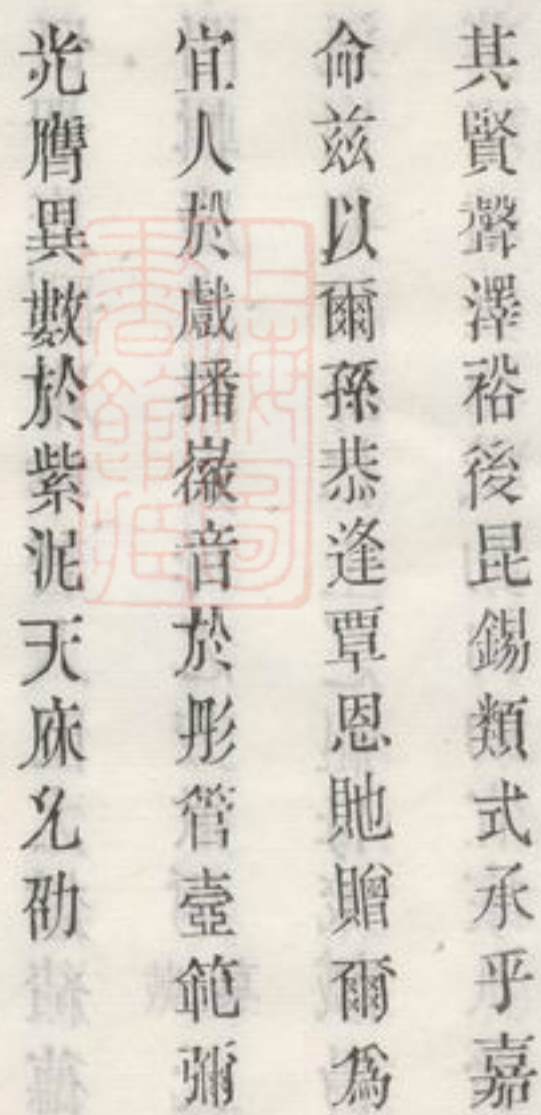 其賢聲澤裕後昆錫類式承乎嘉
命茲以爾孫恭逢覃恩貤贈爾為
宜人於戲播徽音於彤管壼範彌
光膺異數於紫泥天庥允劭
上海圖書館藏